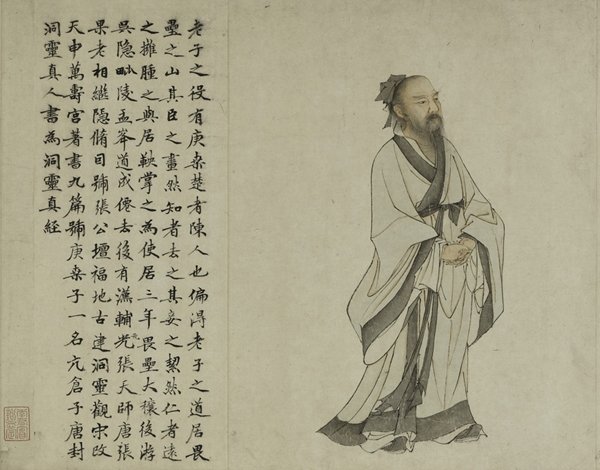 老子之役有庚桑楚者陳人也偏得老子之道居畏
壘之山其臣之畫然知者去之其妾之絜然仁者遠
之擁腫之與居鞅掌之為使居三年畏壘大穰後游
吳隱毗陵孟峯道成僊去後有漢輔光張天師唐張
果老相繼隱脩目號張公壇福地古建洞靈觀宋改
天申萬壽宮著書九篇號庚桑子一名亢倉子唐封
洞靈真人書為洞靈真經